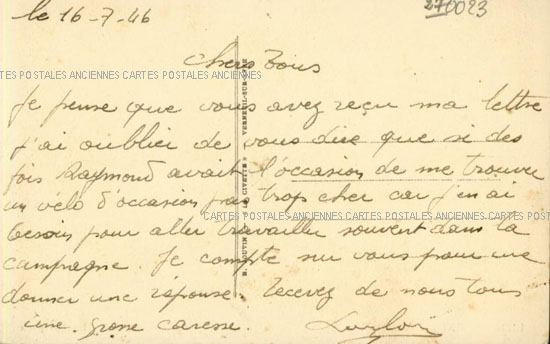 le 16-7-46
270023
Chers Tous
CARTES POSTALES ANCIENNES CARTES POSTALES ANCIENNES
Je pense que vous avez reçu ma lettre
j'ai oublier de vous dire que si des
fois Raymond avait l'occasion de me trouver
un vélo d'occasion pas trop cher car j'en ai
CARTES POSTALES ANCIENNES CARTES POSTALES ANCIENNES
besoin pour aller travailler souvent dans la
campagne. Je compte sur vous pour me
donner une réponse. Recevez de nous tous
une grosse caresse.
VERNEUIL-SUR-